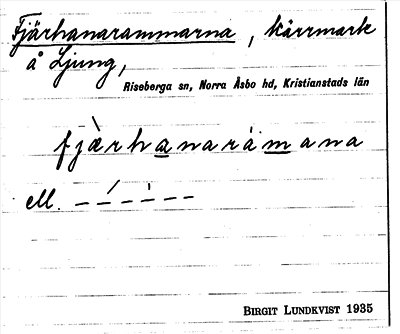 Fjärhanarammarna, kärrmark
å Ljung,
Riseberga sn, Norra Åsbo hd, Kristianstads län
fjàrhanaràmana
ell. – –́ – –̀ – –
BIRGIT LUNDKVIST 1935